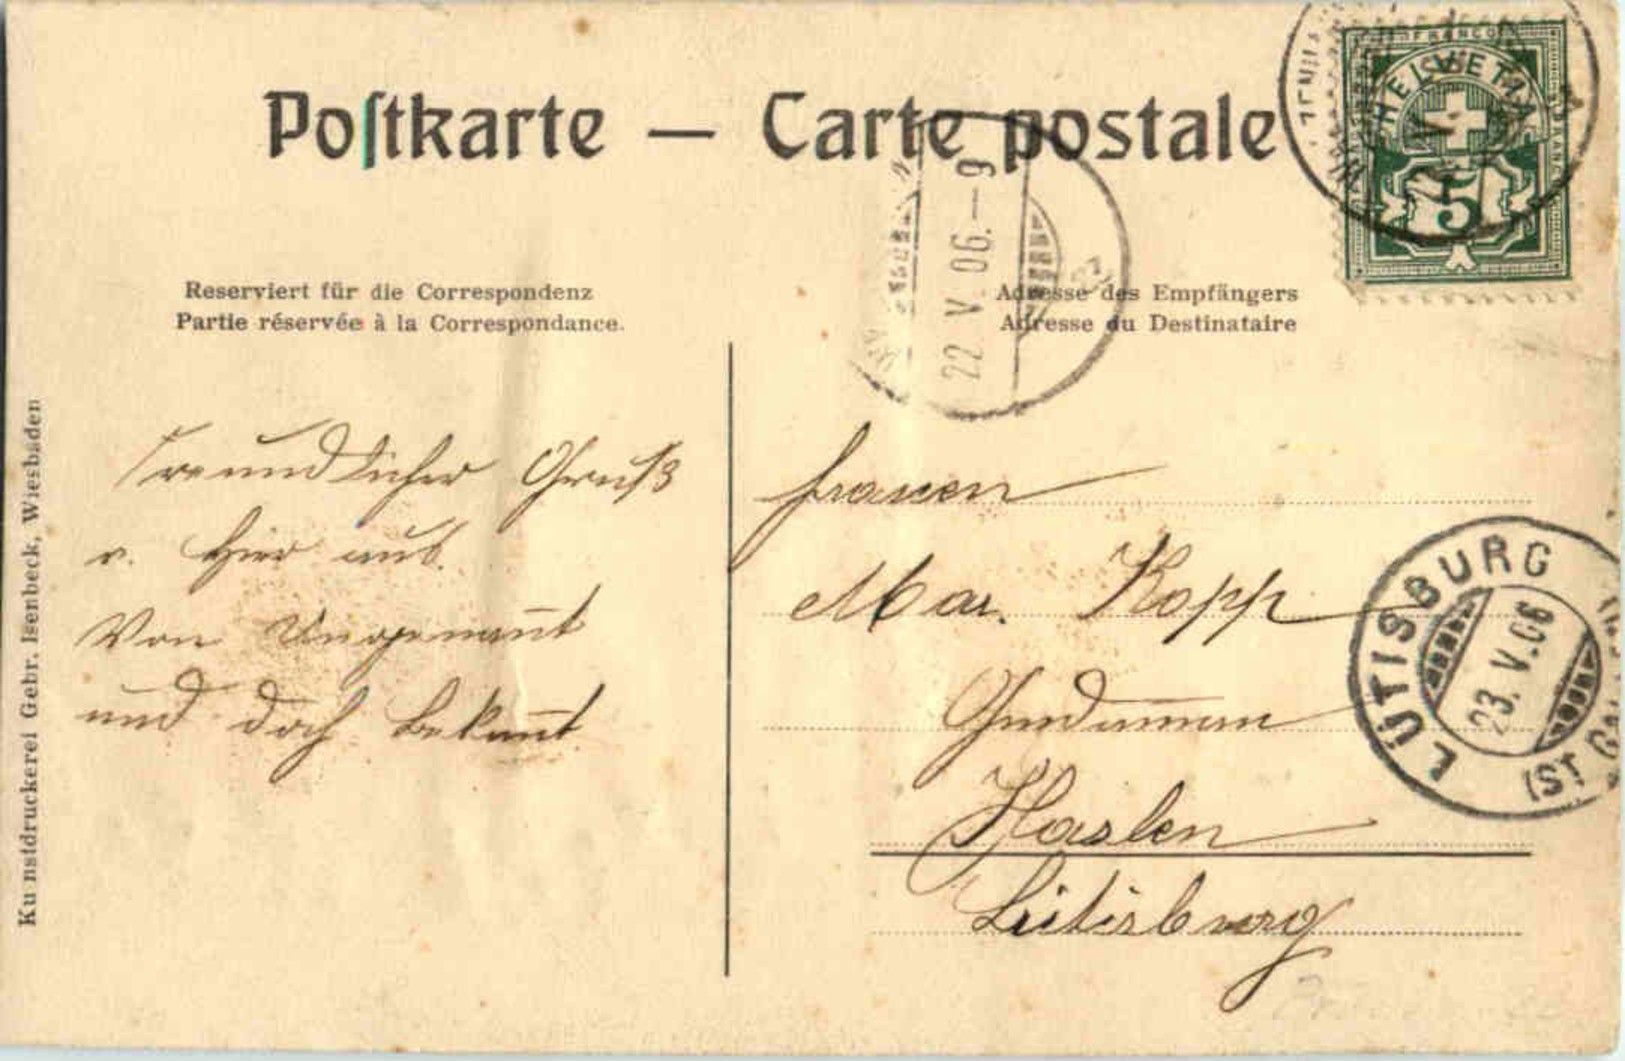 Postkarte — Carte postale
FRANCO
HELVETIA
5
22 V. 06.–9
Reserviert für die Correspondenz
Partie réservée à la Correspondance.
Adresse des Empfängers
Adresse du Destinataire
Freundlicher Gruß
v. hier aus.
Von Ungenannt
und doch bekannt
Frauen
Mar. Kopp
Haslen
Lütisburg
LÜTISBURG
23. V. 06
(ST.
Kunstdruckerei Gebr. Isenbeck, Wiesbaden